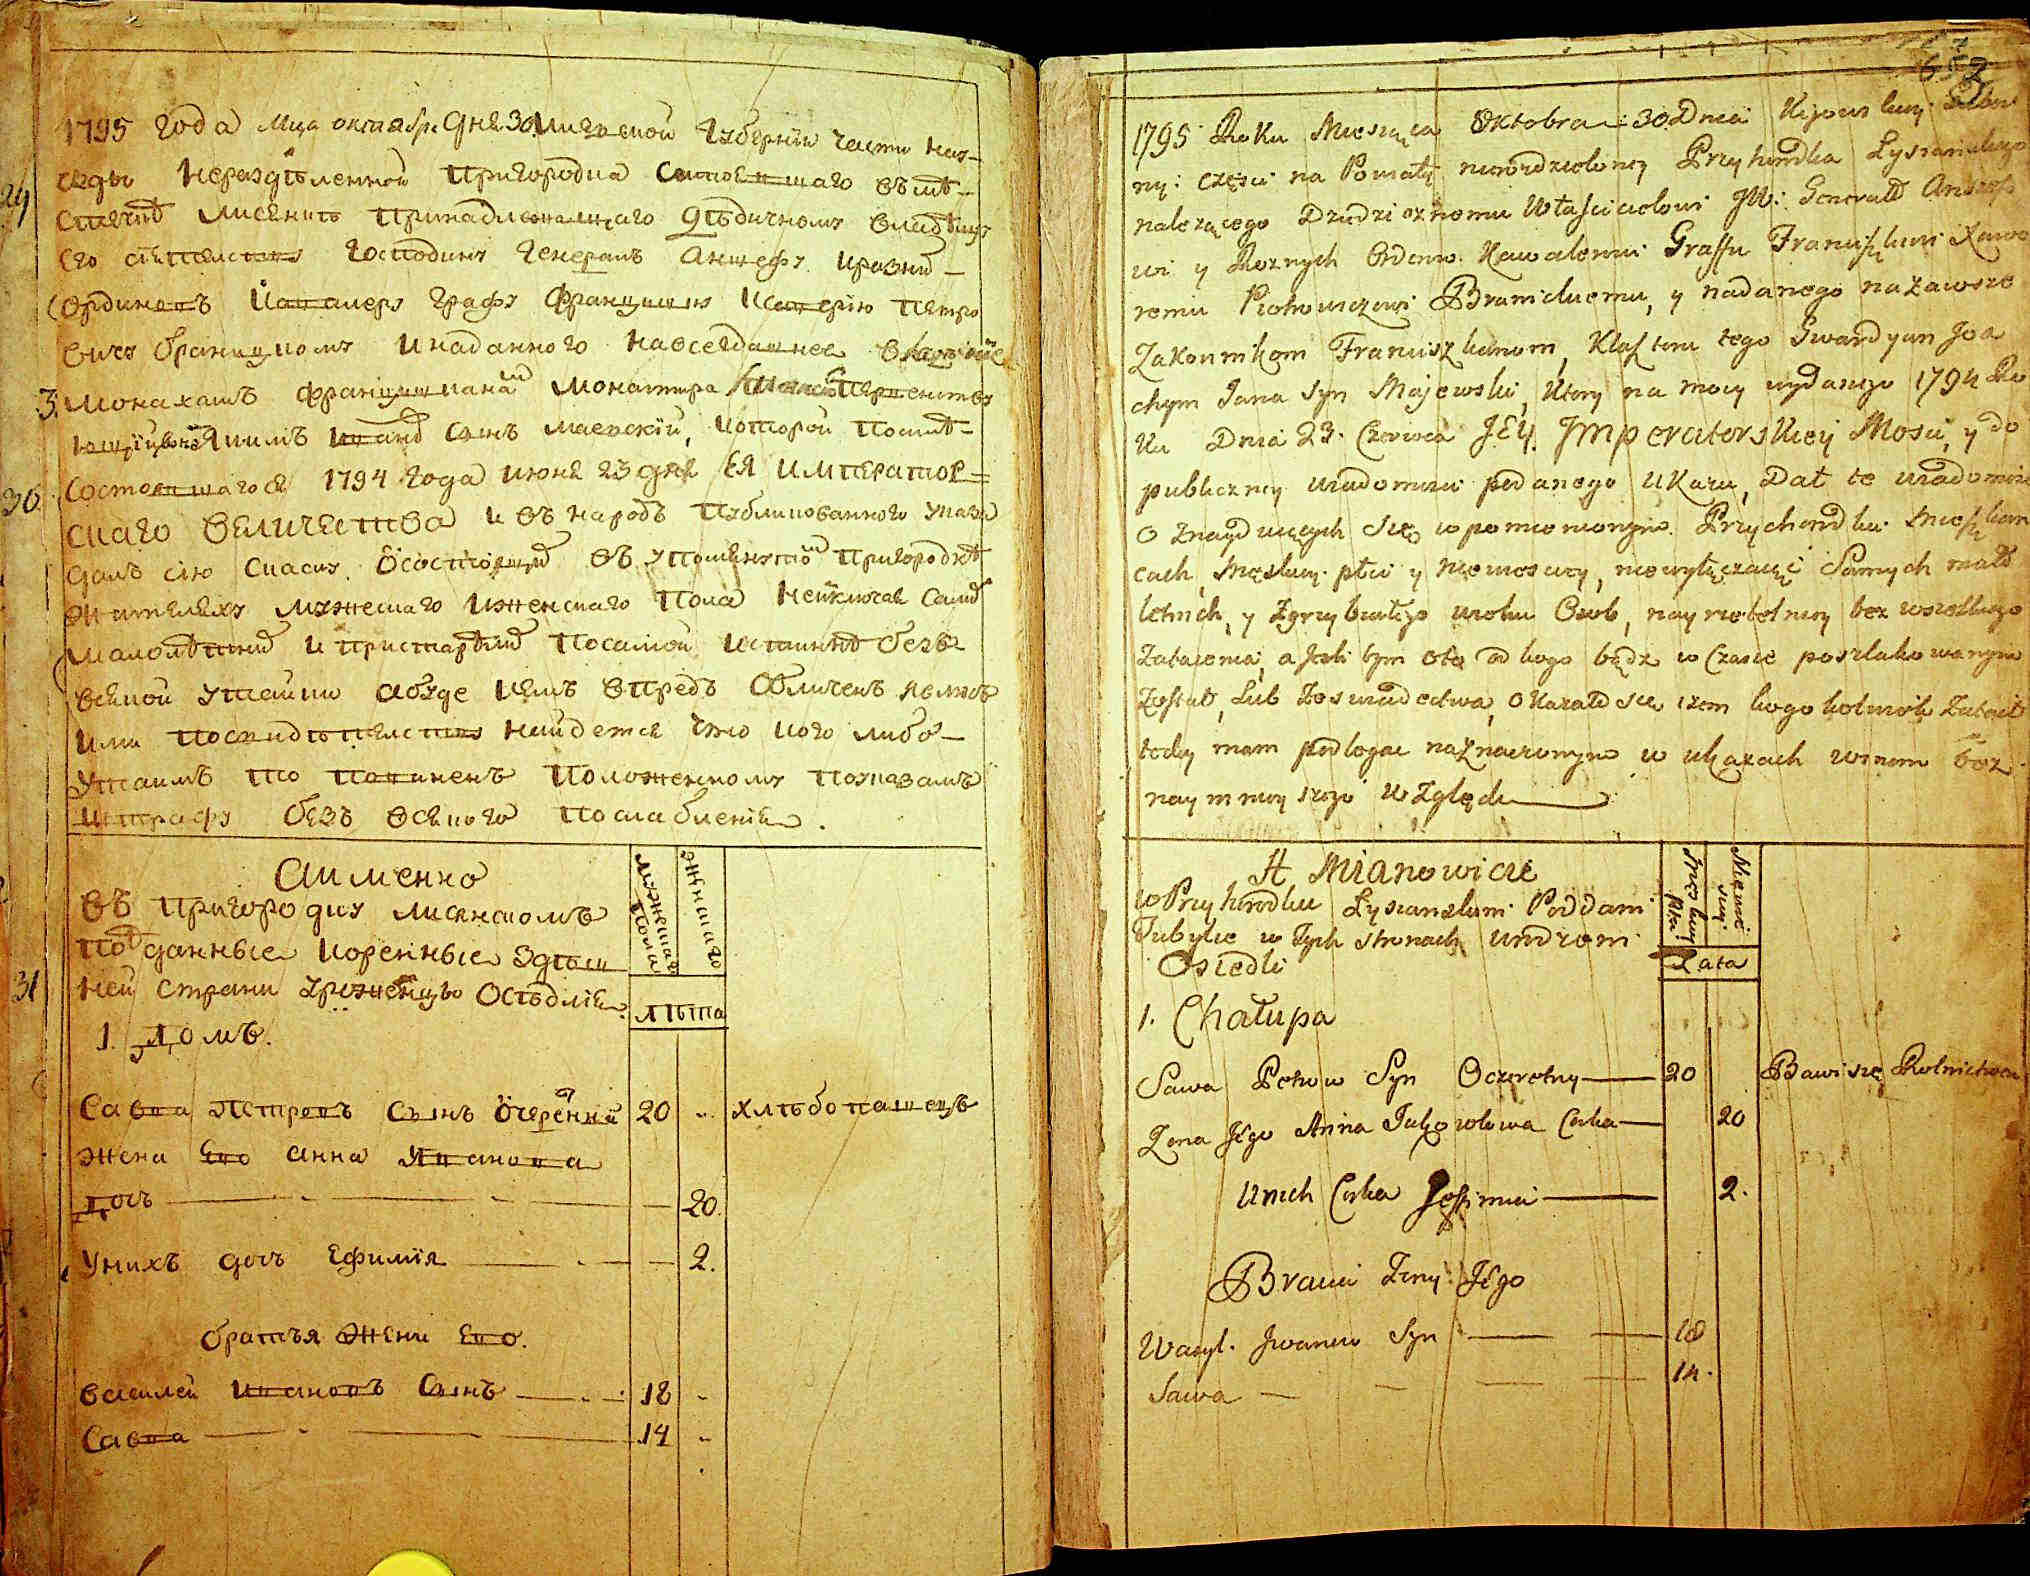 1795 года Мца октября дня 30 Киевской Губернии части на у-
езды неразделенной Пригородка состоящаго въ мѣ-
стечкѣ Лисянкѣ принадлежащаго дѣдичному владѣлцу
его сіятелству Господину Генералъ Аншефу и разни
Ординовъ Кавалеру Графу Францишку Ксаверію Петро
вичу Браницкому и наданного навсегдашнее владѣніе
Монахамъ францишканай Монастира
Иоанъ Синъ Маевскій, которой по силѣ
состоявшагося 1794 года июня 23 дня ЕЯ ИМПЕРАТОР=
СКАГО ВЕЛИЧЕСТВА и въ народъ публикованного указа
далъ сію сказку о состоящій въ упомянутой Пригородкѣ
жителяхъ мужескаго и женскаго пола неисключая самій
малолѣтний и пристарѣлий по самой истиннѣ безъ
всякой утайки а буде кемъ впредь обличенъ
или по свидѣтелству найдется что кого либо
утаилъ то повиненъ положенному по указамъ
штрафу безъ всякого послабленія.
А именно
въ пригородку лисянскомъ
подданные коренные здѣш
ней страни урожѣнцы осѣдліе
мужескаго пола
женскаго
лѣта
1. Домъ.
Савва Петровъ Синъ Очеренній 20 хлѣбопашецъ
жена его Анна Иванова
дочь 20.
У нихъ дочь Ефимія 2.
братья жени его.
Василей Ивановъ Синъ 18
Савва 14
24
30
31
652
1795 Roku Miesiąca Oktobra 30 Dnia Kijowskiey Guber
nij części na Powiaty nierozdzieloney Przyhorodka Lysianskiego
należącego Dziedzicznemu Właścicielowi JW: Generałł Anszefo
wi y Roznych Orderow Kawalerowi Graffu Franciszkowi Xawe
remu Piotrowiczowi Branickiemu, y nadanego na zawsze
Zakonnikom Franciszkanom, Klasztoru tego Gwardyan Joa
chym Jana Syn Majewski, który na mocy wydanego 1794 Ro
ku Dnia 23. Czerwca JEY. IMperatorskiey Mosci, y do
publiczney wiadomosci podanego Ukazu, Dał te wiadomosc
o znayduiących się w pomienionym Przyhorodku Mieszkan
cach, Męskiey płci y Niewesciey, niewyłączaiąc Samych mało
letnich, y zgrzybiałego wieku Osob, nayrzetelniey bez wszelkiego
zataienia, a Jeżli bym oto od kogo bądz w Czasie poszlakowanym
został, lub zeswiadectwa, okazało się iżem kogo kolwiek zataił
tedy mam podlegac naznaczonym w ukazach winom bez
naymnieyszego względu
A Mianowicie
w Przyhorodku Lysianskim Poddani
Tubylcy w Tych stronach urodzeni
Osiedli
Męskiey płci
Niewiesciey
Lata
1. Chałupa
Sawa Petrow Syn Oczeretny 20 Bawi się Rolnictwem
Zona Jego Anna Córka 20
U nich Corka 2.
Bracia Zony Jego
Wasyl. Iwanow Syn 18
Sawa 14.